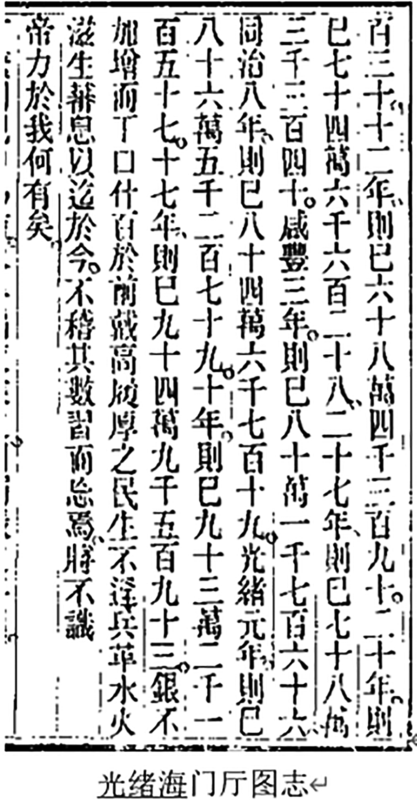 百三十十二年則已六十八萬四千三百九十二十年則
已七十四萬六千六百二十八二十七年則已七十八萬
三千三百四十咸豐三年則已八十萬一千七百六十六
同治八年則已八十四萬六千七百十九光緒元年則已
八十六萬五千二百七十九十年則已九十三萬二千一
百五十七十七年則已九十四萬九千五百九十三銀不
加增而丁口什百於前戴高履厚之民生不逢兵革水火
滋生蕃息以迄於今不稽其數習而忘焉將不識
帝力於我何有矣
光绪海门厅图志